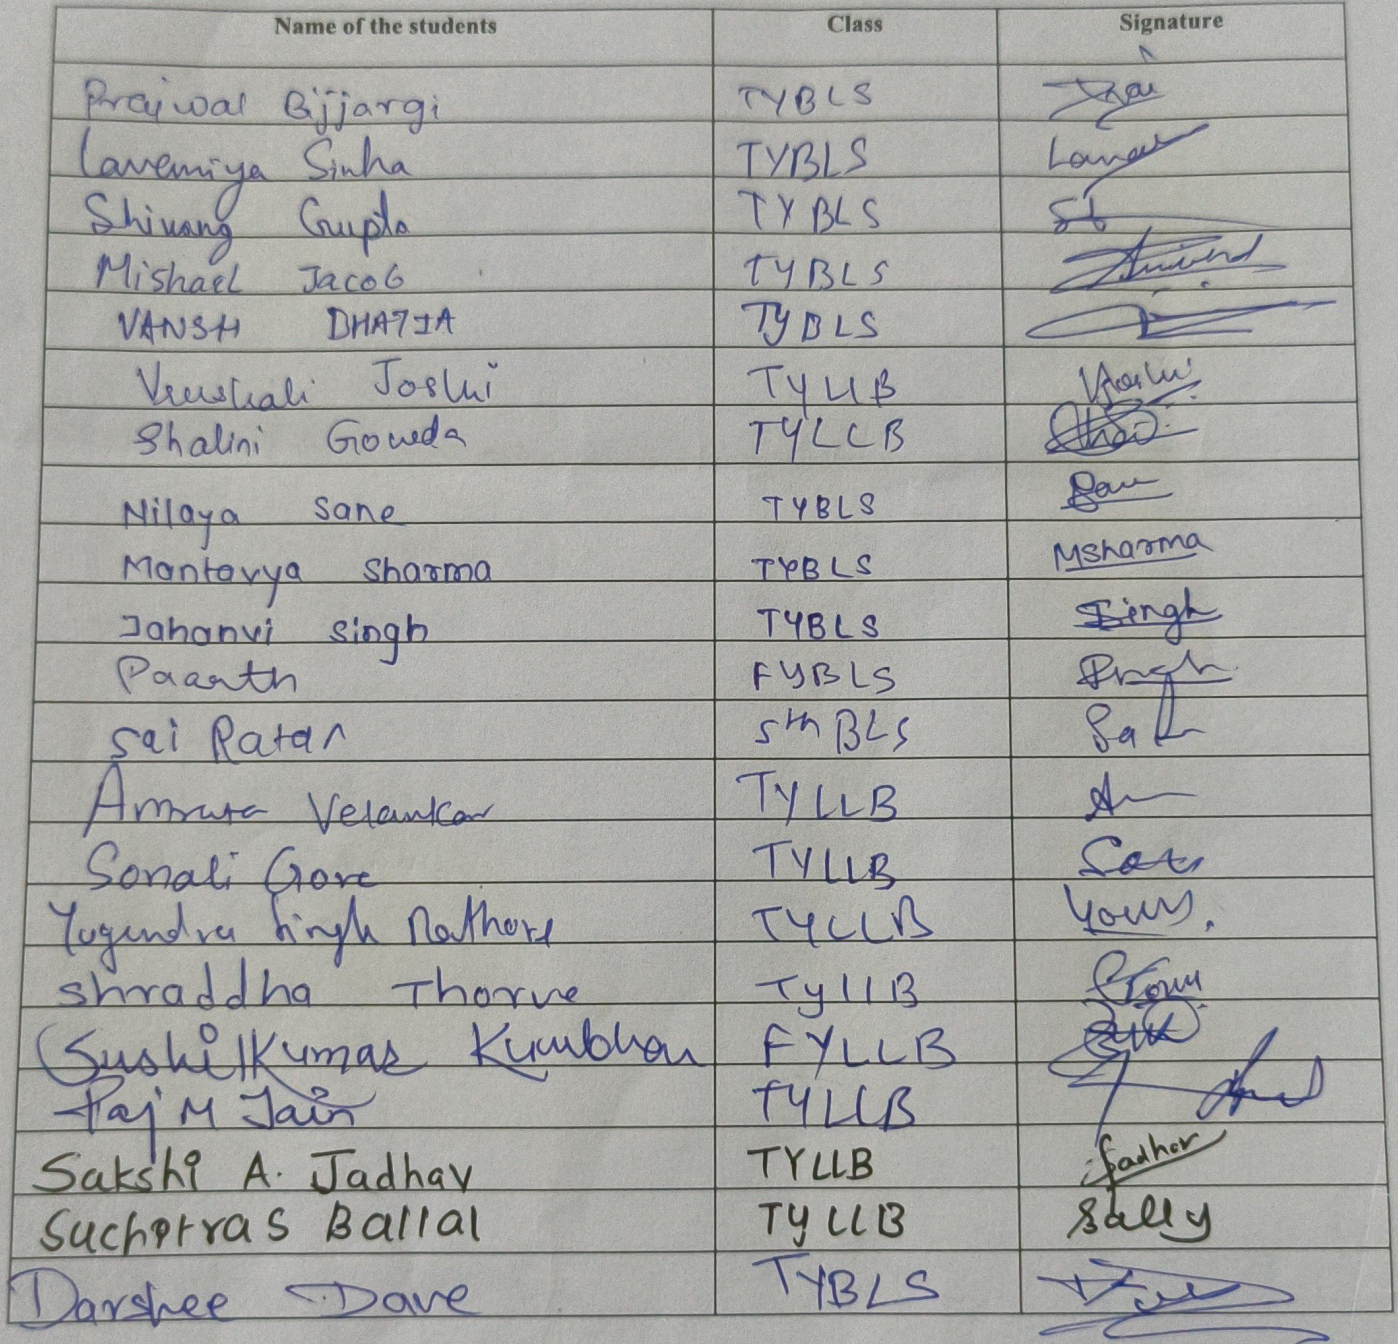 Name of the students Class Signature
Prajwal Bijjargi TYBLS
Lavemiya Sinha TYBLS
Shivang Gupta TYBLS
Mishael Jacob TYBLS
VANSH BHATIA TYBLS
Vrushali Joshi TYLLB
Shalini Gowda TYLLB
Nilaya Sane TYBLS
Mantavya Sharma TYBLS MSharma
Jahanvi Singh TYBLS Singh
Paarth FYBLS
Sai Ratan 5th BLS
Amruta Velankar TYLLB
Sonali Gore TYLLB
Yugendra Singh Rathore TYLLB
Shraddha Thorve TyllB
Sushilkumar Kumbhar FYLLB
Raj M Jain TYLLB
Sakshi A. Jadhav TYLLB Jadhav
Ballal TYLLB
Darshee Dave TYBLS